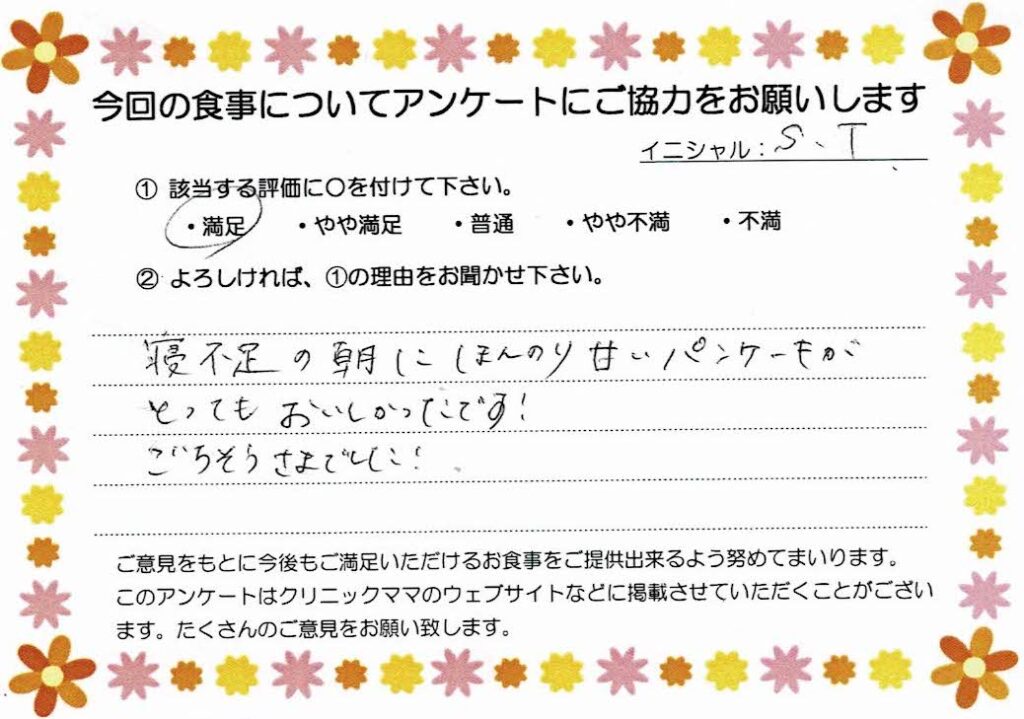 今回の食事についてアンケートにご協力をお願いします
イニシャル：S、T
① 該当する評価に○を付けて下さい。
・満足 ・やや満足 ・普通 ・やや不満 ・不満
② よろしければ、①の理由をお聞かせ下さい。
寝不足の朝にほんのり甘いパンケーキが
とってもおいしかったです！
ごちそうさまでした！
ご意見をもとに今後もご満足いただけるお食事をご提供出来るよう努めてまいります。
このアンケートはクリニックママのウェブサイトなどに掲載させていただくことがござい
ます。たくさんのご意見をお願い致します。